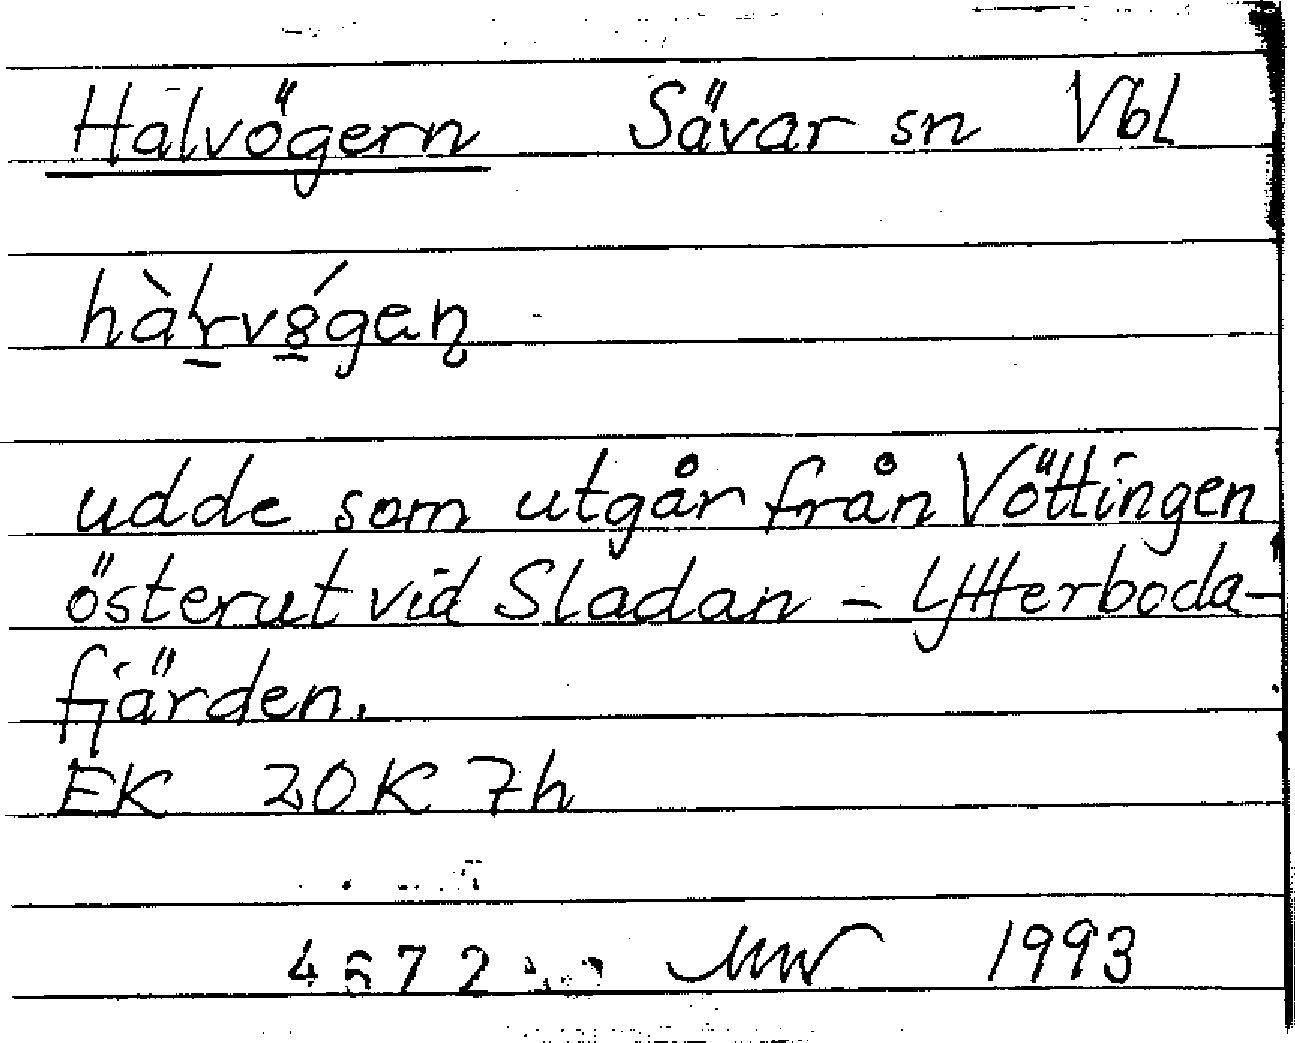 Halvögern Sävar sn Vbl
udde som utgår från Vöttingen
österut vid Sladan - Ytterboda-
fjärden.
EK 20K 7h
1993